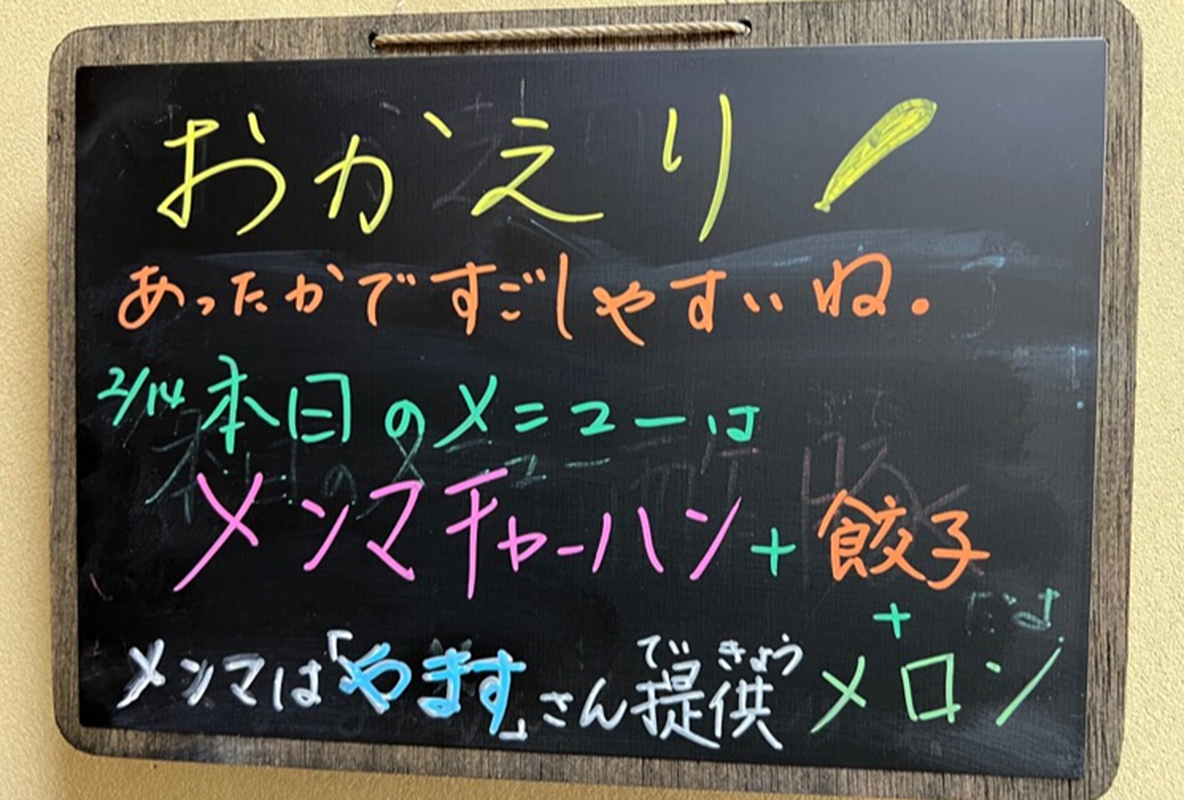 おかえり!
あったかですごしやすいね。
2/14 本日のメニューは
メンマチャーハン+餃子
+
メロン
メンマは「やます」さん提供
ていきょう